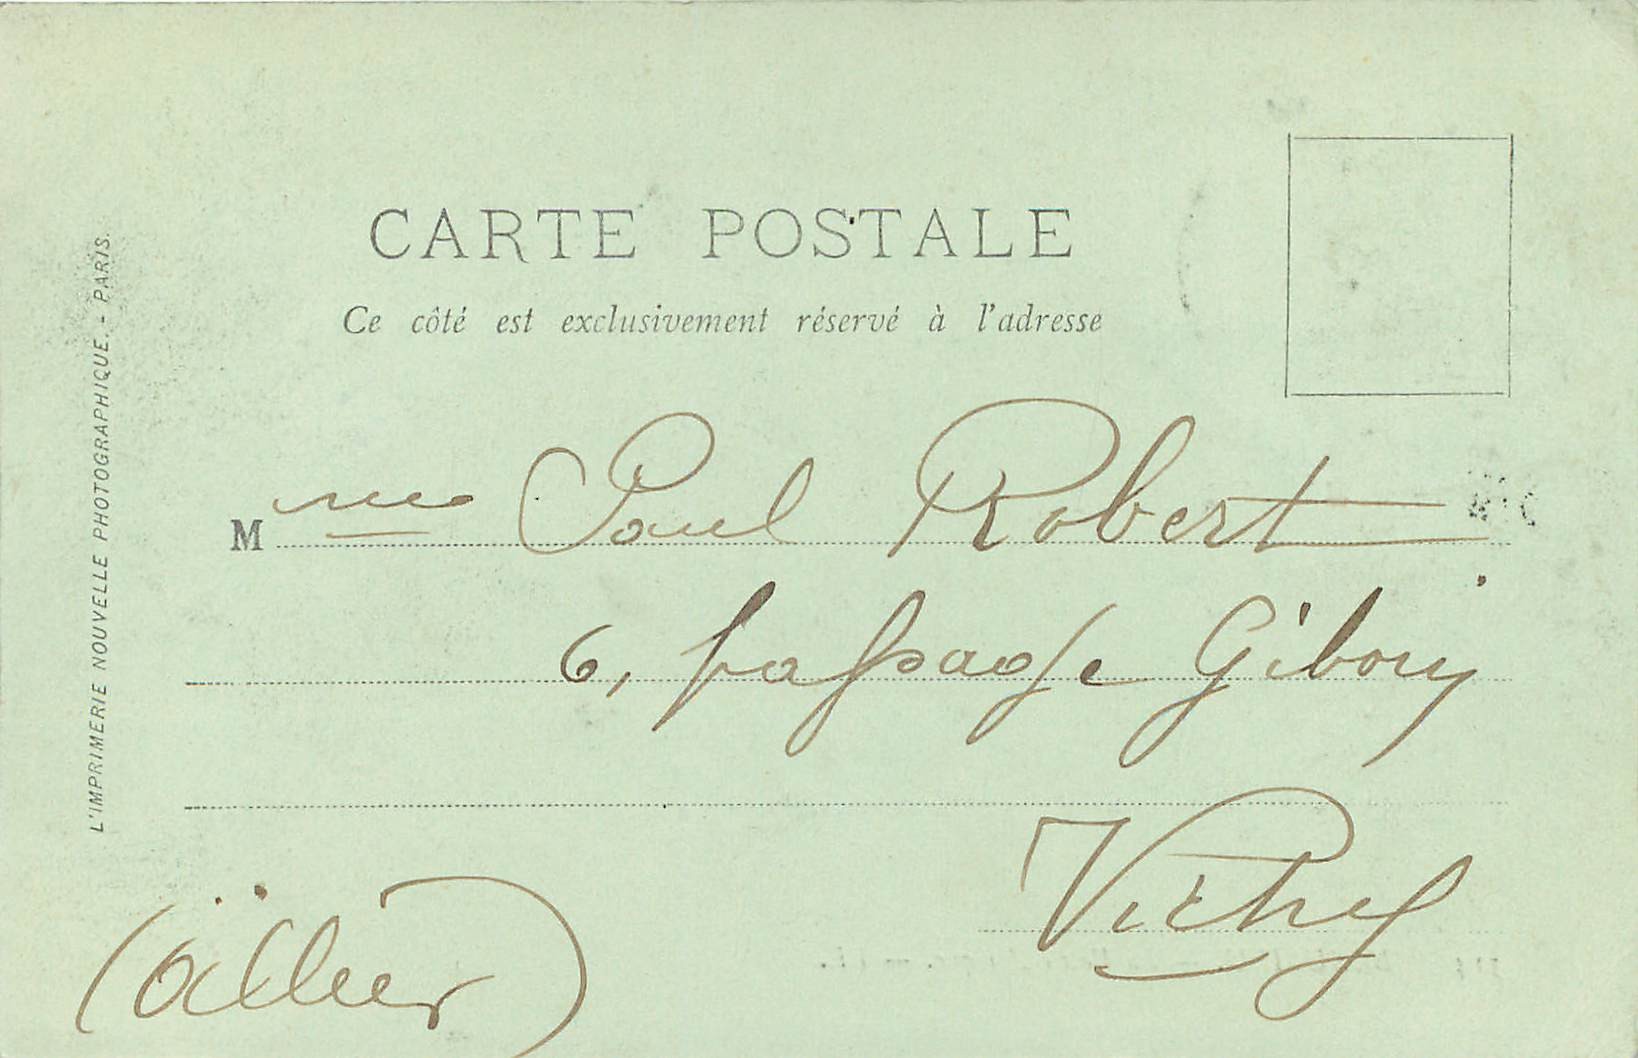 CARTE POSTALE
Ce côté est exclusivement réservé à l'adresse
Mme Paul Robert
6, passage Giboin
Vichy
(Allier)
L'IMPRIMERIE NOUVELLE PHOTOGRAPHIQUE. - PARIS.